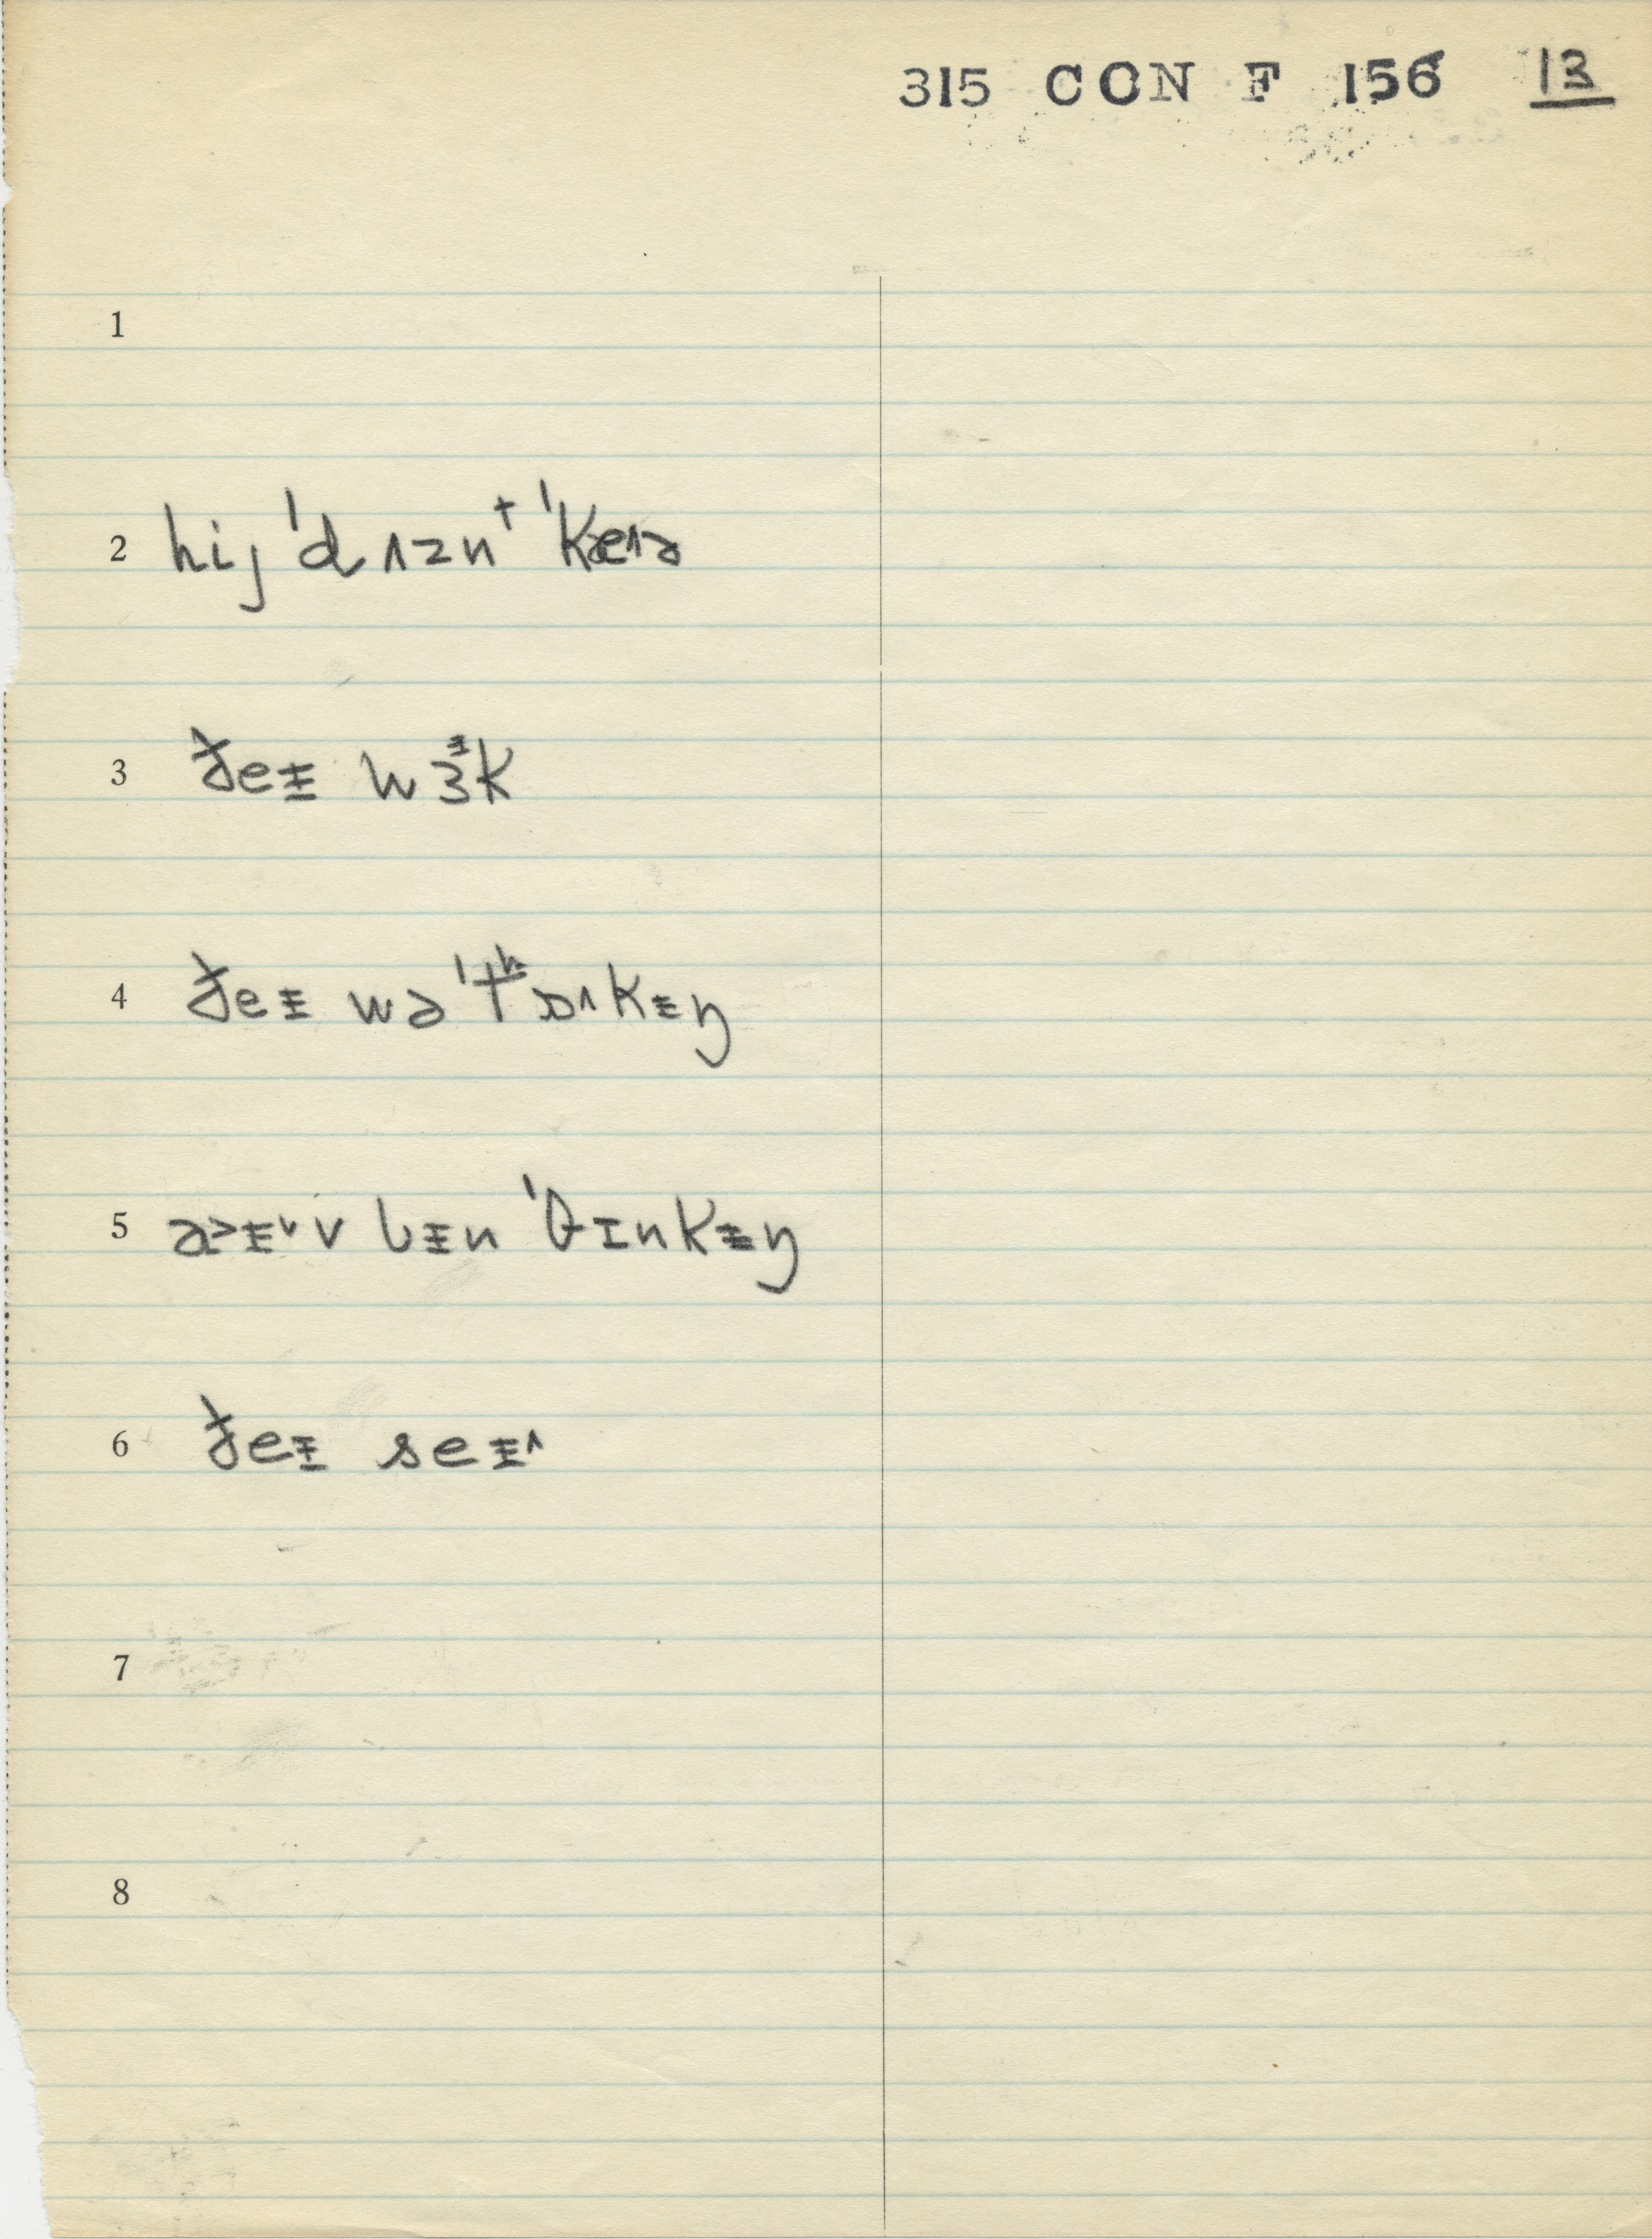 315 CON F 156 13
1
2 hij ˈdʌznᵗ ˈkæʌə
3 ðeɪ̵ wɜᶤk
4 ðeɪ̵ wə ˈtʰɒʌkɪ̵ŋ
5 a˃ɪ̵˅v bɪ̵n ˈθɪnkɪ̵ŋ
6 ðeɪ̵ seɪ̵ʌ
7
8